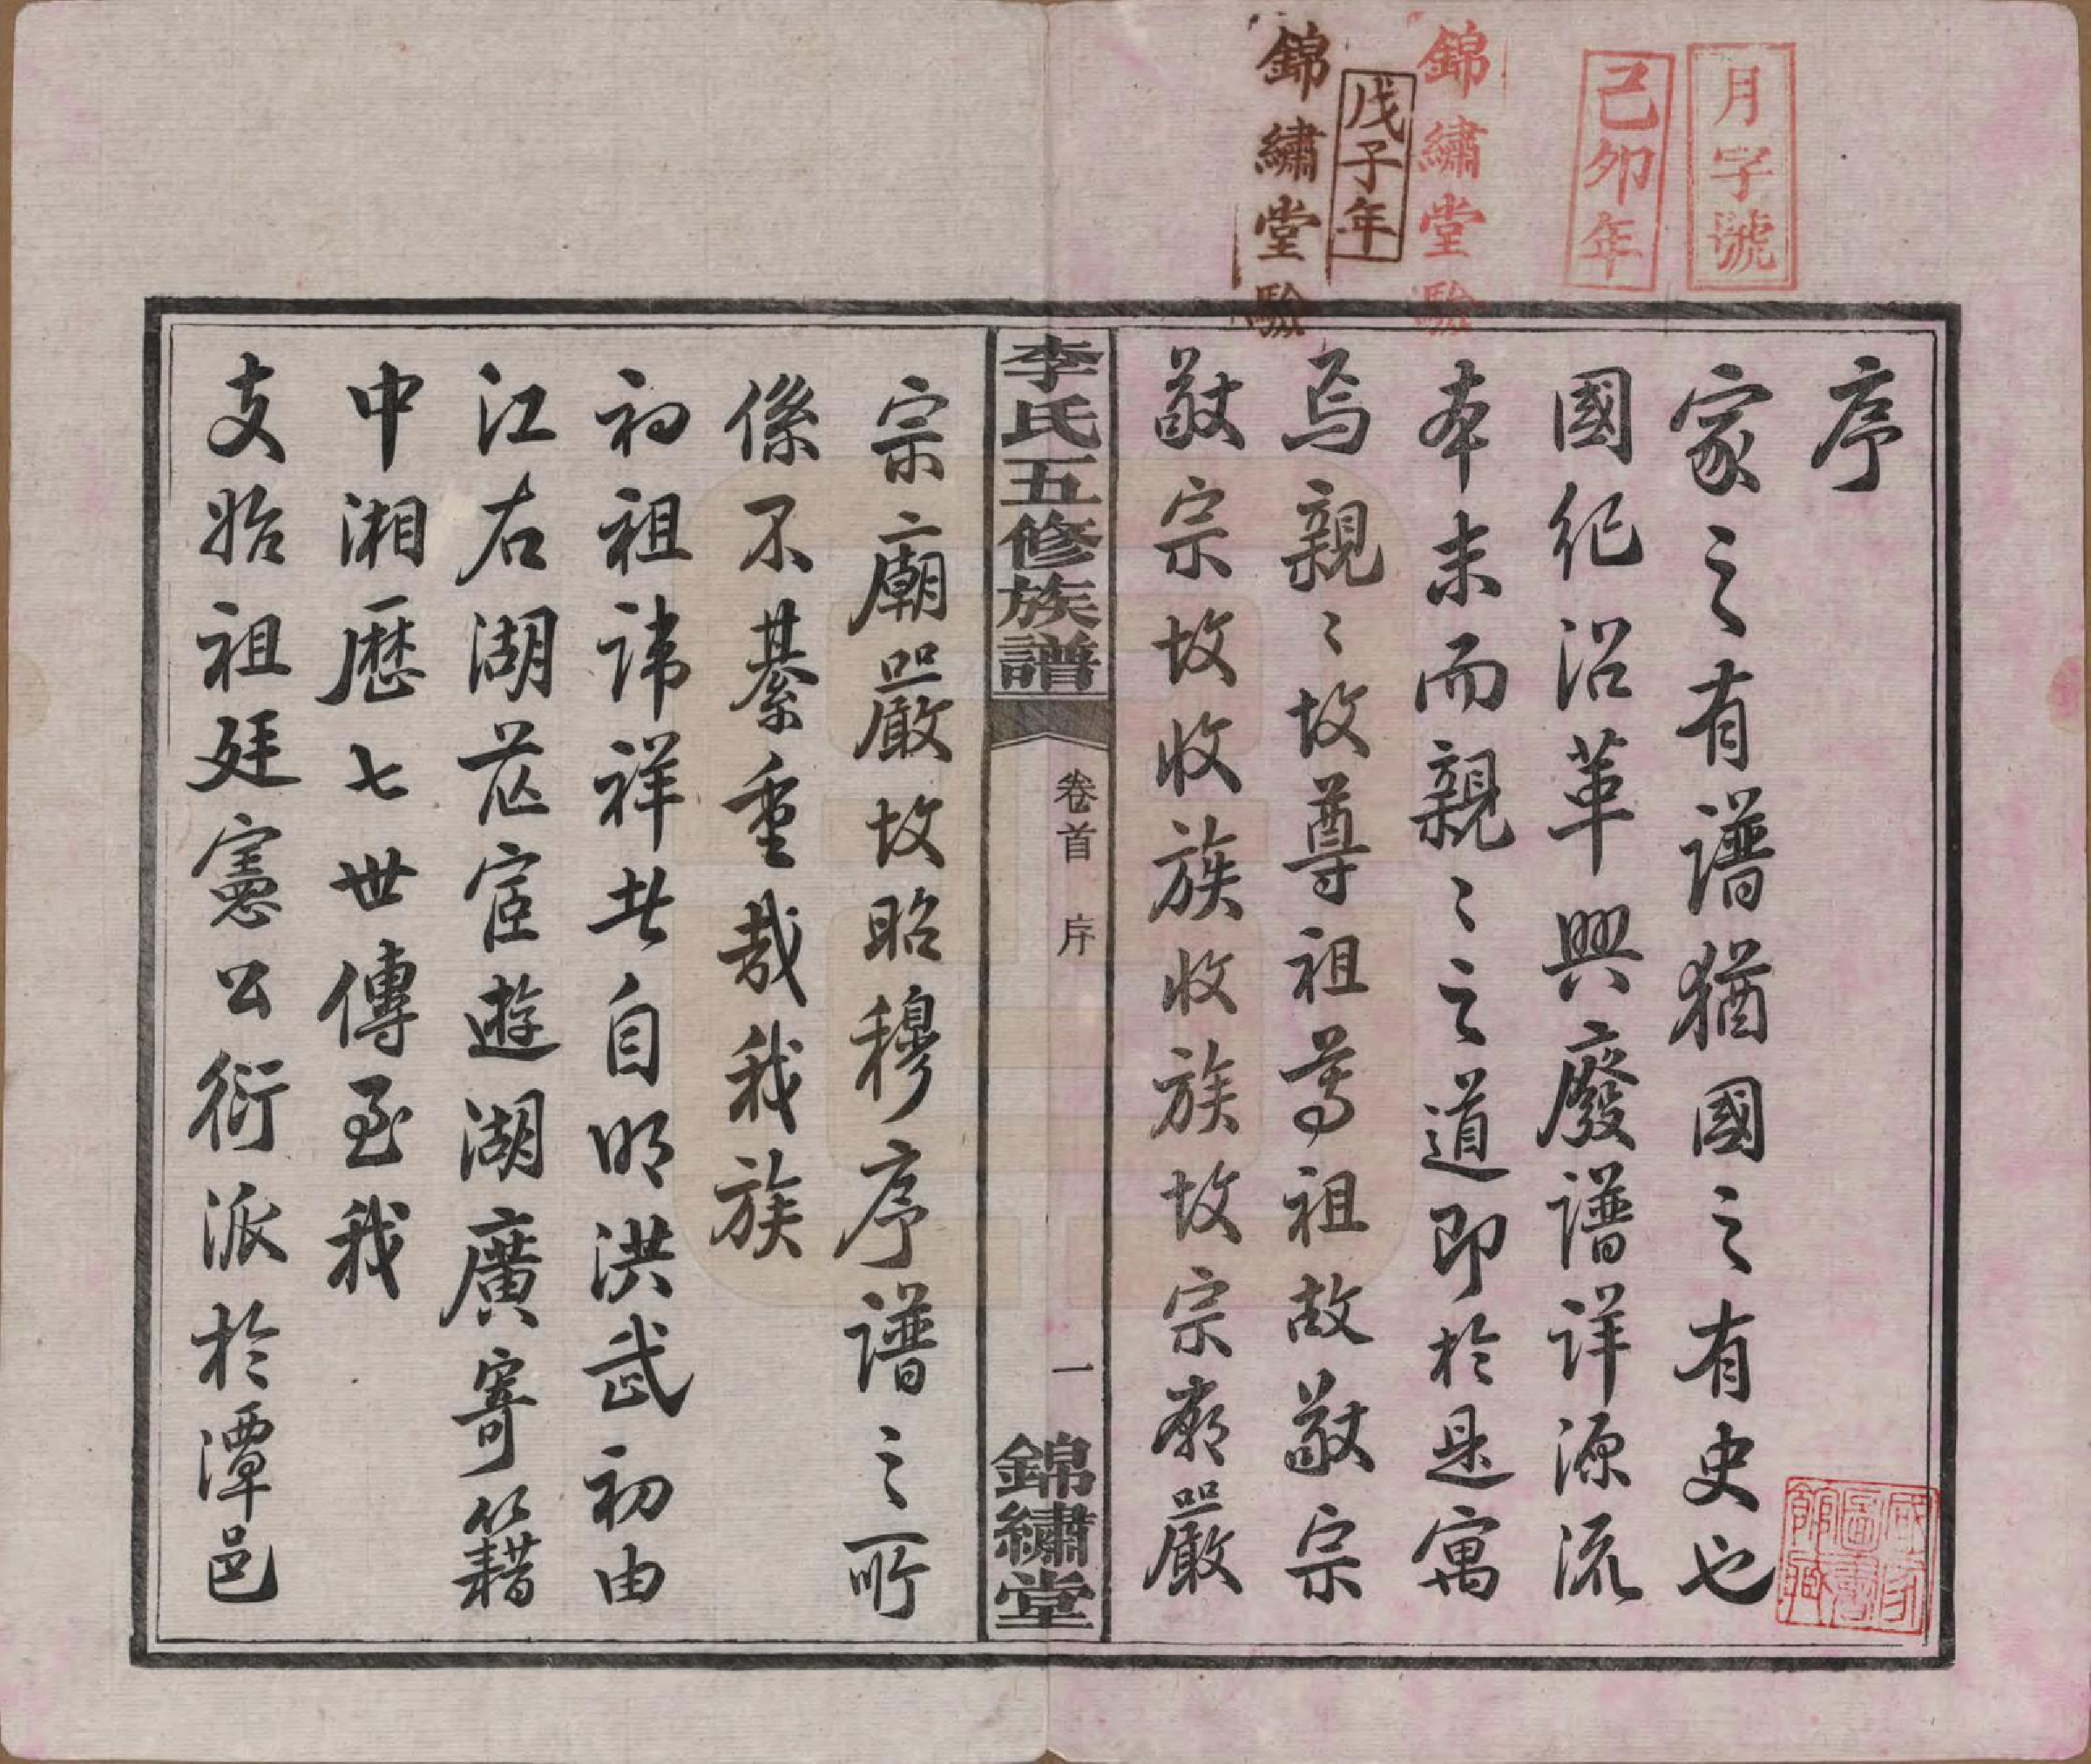 月字號
己卯年
錦繡堂驗
戊子年
錦繡堂驗
序
家之有譜猶國之有史也
國紀沿革興廢譜詳源流
本末而親〻之道即於是寓
焉親〻故尊祖尊祖故敬宗
敬宗故收族收族故宗廟嚴
李氏五修族譜
卷首 序
一
錦繡堂
宗廟嚴故昭穆序譜之所
係不綦重哉我族
初祖諱祥甡自明洪武初由
江右湖茫宦遊湖廣寄籍
中湘歷七世傳至我
支始祖廷憲公衍派於潭邑
國家圖書館藏